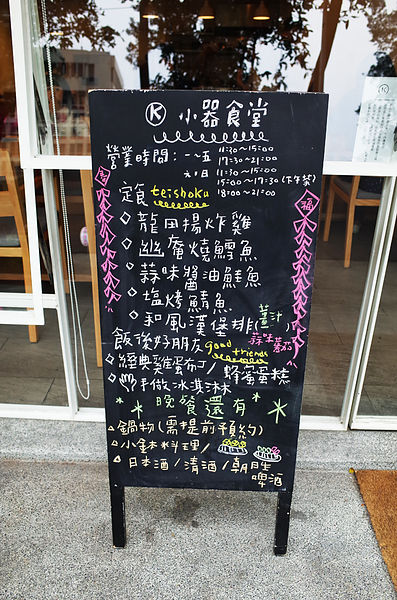 Ⓚ 小器食堂
營業時間: 一~五 11:30~15:00
17:30~21:00
六、日 11:30~15:00
15:00~17:30 (下午茶)
18:00~21:00
定食 teishoku
福
◇ 龍田揚炸雞
◇ 幽庵燒鱈魚
◇ 蒜味醬油鮭魚
◇ 塩烤鯖魚
◇ 和風漢堡排(薑汁/蒜味蕃茄
飯後好朋友 good friends
◇ 經典雞蛋布丁/蜂蜜蛋糕
◇ 手做冰淇淋
晚餐還有
△ 鍋物(需提前預約)
△ 小缽料理/
△ 日本酒/清酒/朝日生啤酒